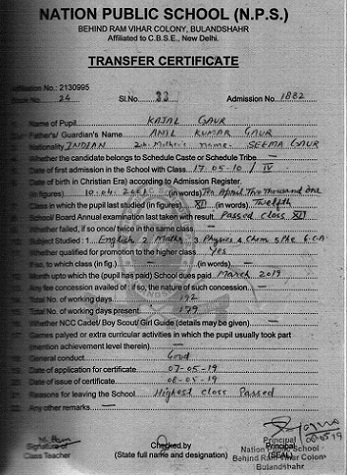 NATION PUBLIC SCHOOL (N.P.S.)
BEHIND RAM VIHAR COLONY, BULANDSHAHR
Affiliated to C.B.S.E., New Delhi.
TRANSFER CERTIFICATE
Affiliation No.: 2130995
Book No. 24 Sl.No. 33 Admission No. 1882
Name of Pupil KAJAL GAUR
Father's/ Guardian's Name ANIL KUMAR GAUR
Nationality INDIAN Mother's name- SEEMA GAUR
Whether the candidate belongs to Schedule Caste or Schedule Tribe —
Date of first admission in the School with Class 17.05.10 / IV
Date of birth (in Christian Era) according to Admission Register.
(in figures) 10.04.2001 (in words) Ten April Two thousand one
Class in which the pupil last studied (in figures) XII (in words) Twelfth
School/ Board Annual examination last taken with result Passed class XII
Whether failed, if so once/ twice in the same class —
Subject Studied : 1 English 2 Maths 3 Physics 4 Chem 5 Phe 6 C.A.
Whether qualified for promotion to the higher class Yes
If so, to which class (in fig.) — (in words) —
Month upto which the (pupil has paid) School dues paid March 2019
Any fee concession availed of : if so, the nature of such concession. —
Total No. of working days 192
Total No. of working days present 179
Whether NCC Cadet/ Boy Scout/ Girl Guide (details may be given) —
Games palyed or extra curricular activities in which the pupil usually took part
(mention achievement level therein) —
General conduct Good
Date of application for certificate 07-05-19
Date of issue of certificate 08-05-19
Reasons for leaving the School Highest class Passed
22. Any other remarks —
Signature of
Class Teacher
Checked by
(State full name and designation)
Principal
(SEAL)
08-05-19
Principal
Nation Public School
Behind Ram Vihar Colony
Bulandshahr